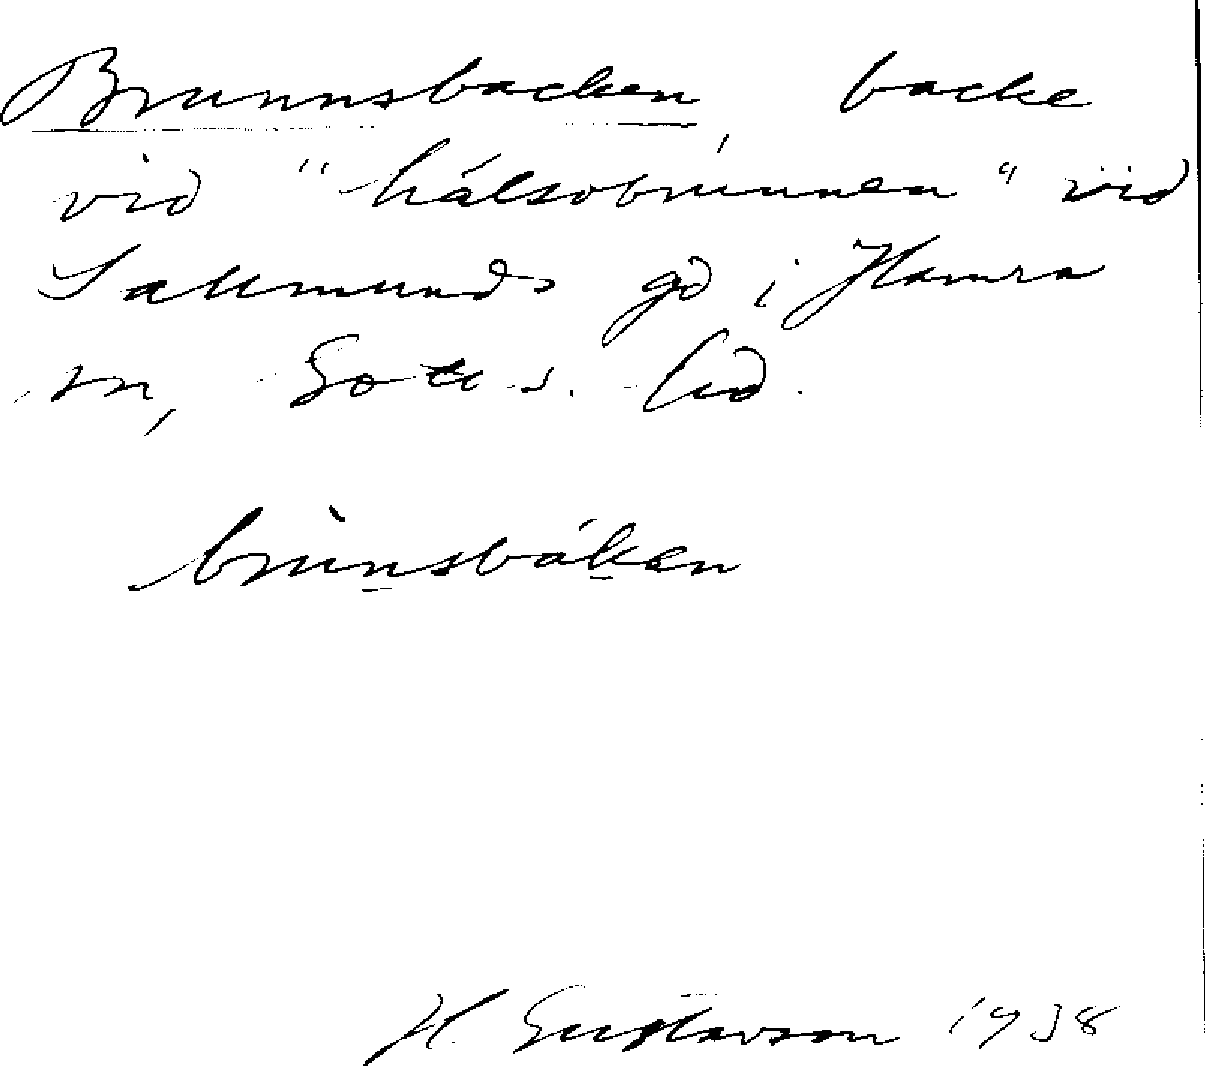 Brunnsbacken, backe
vid "hälsobrunnen" vid
Sallmunds gd i Hamra
sn, Gotl. s. hd.
brùnsbáken
H. Gustavson 1938